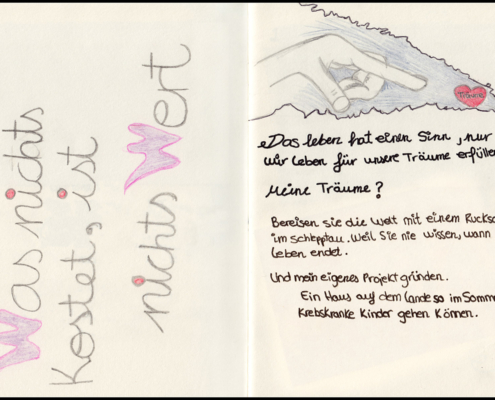 Was nichts
Kostet, ist
nichts Wert
Träume
»Das leben hat einen Sinn, nur
wir leben für unsere Träume erfülle
Meine Träume?
Bereisen sie die Welt mit einem Rucks
im Schlepptau. Weil Sie nie wissen, wann
leben endet.
Und mein eigenes Projekt gründen.
Ein Haus auf dem Lande so im Somm
Krebskranke Kinder gehen Können.